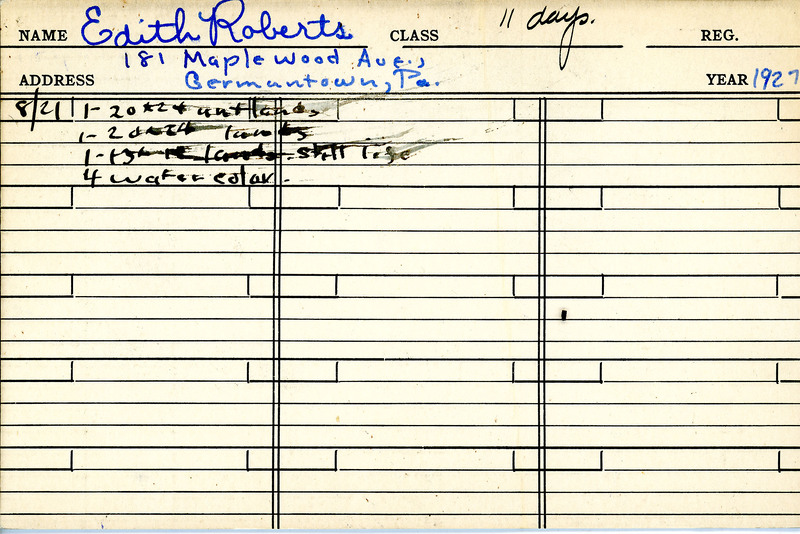 NAME Edith Roberts CLASS 11 days. REG.
181 Maplewood Ave.,
ADDRESS Germantown, Pa. YEAR 1927
8/21 1-20x24
1-20x24 lands
1- lands still life
4 water color.